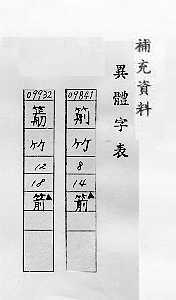 補充資料
異體字表
09841
𥬲
竹
8
14
箭▲
09932
竹
12
18
箭▲